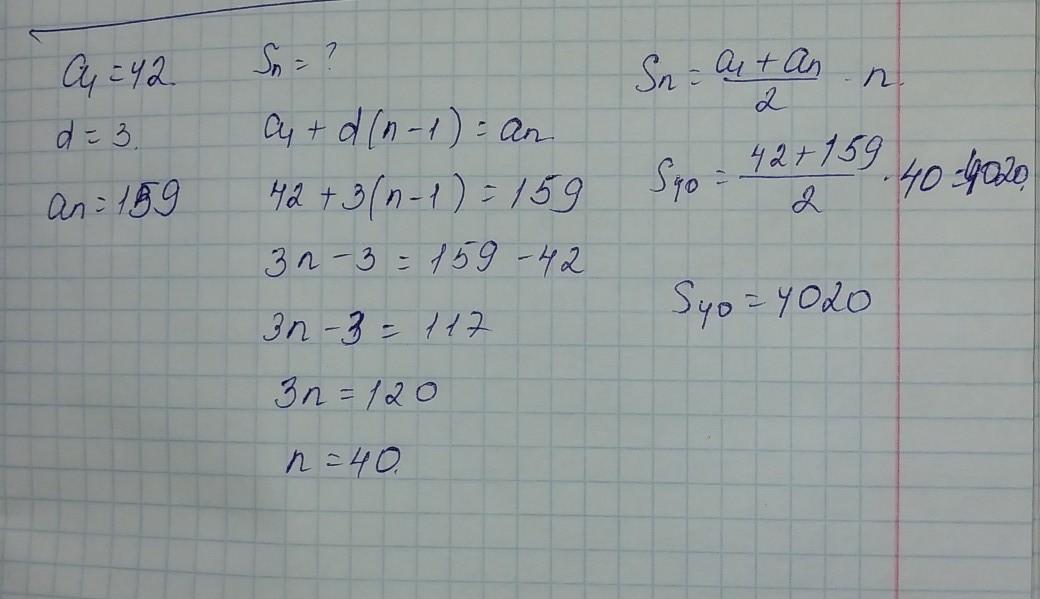 a₁ = 42
d = 3.
aₙ = 159
Sₙ = ?
a₁ + d(n-1) = aₙ
42 + 3(n-1) = 159
3n - 3 = 159 - 42
3n - 3 = 117
3n = 120
n = 40.
Sₙ = (a₁ + aₙ)/2 · n.
S₄₀ = (42 + 159)/2 · 40 = 4020.
S₄₀ = 4020